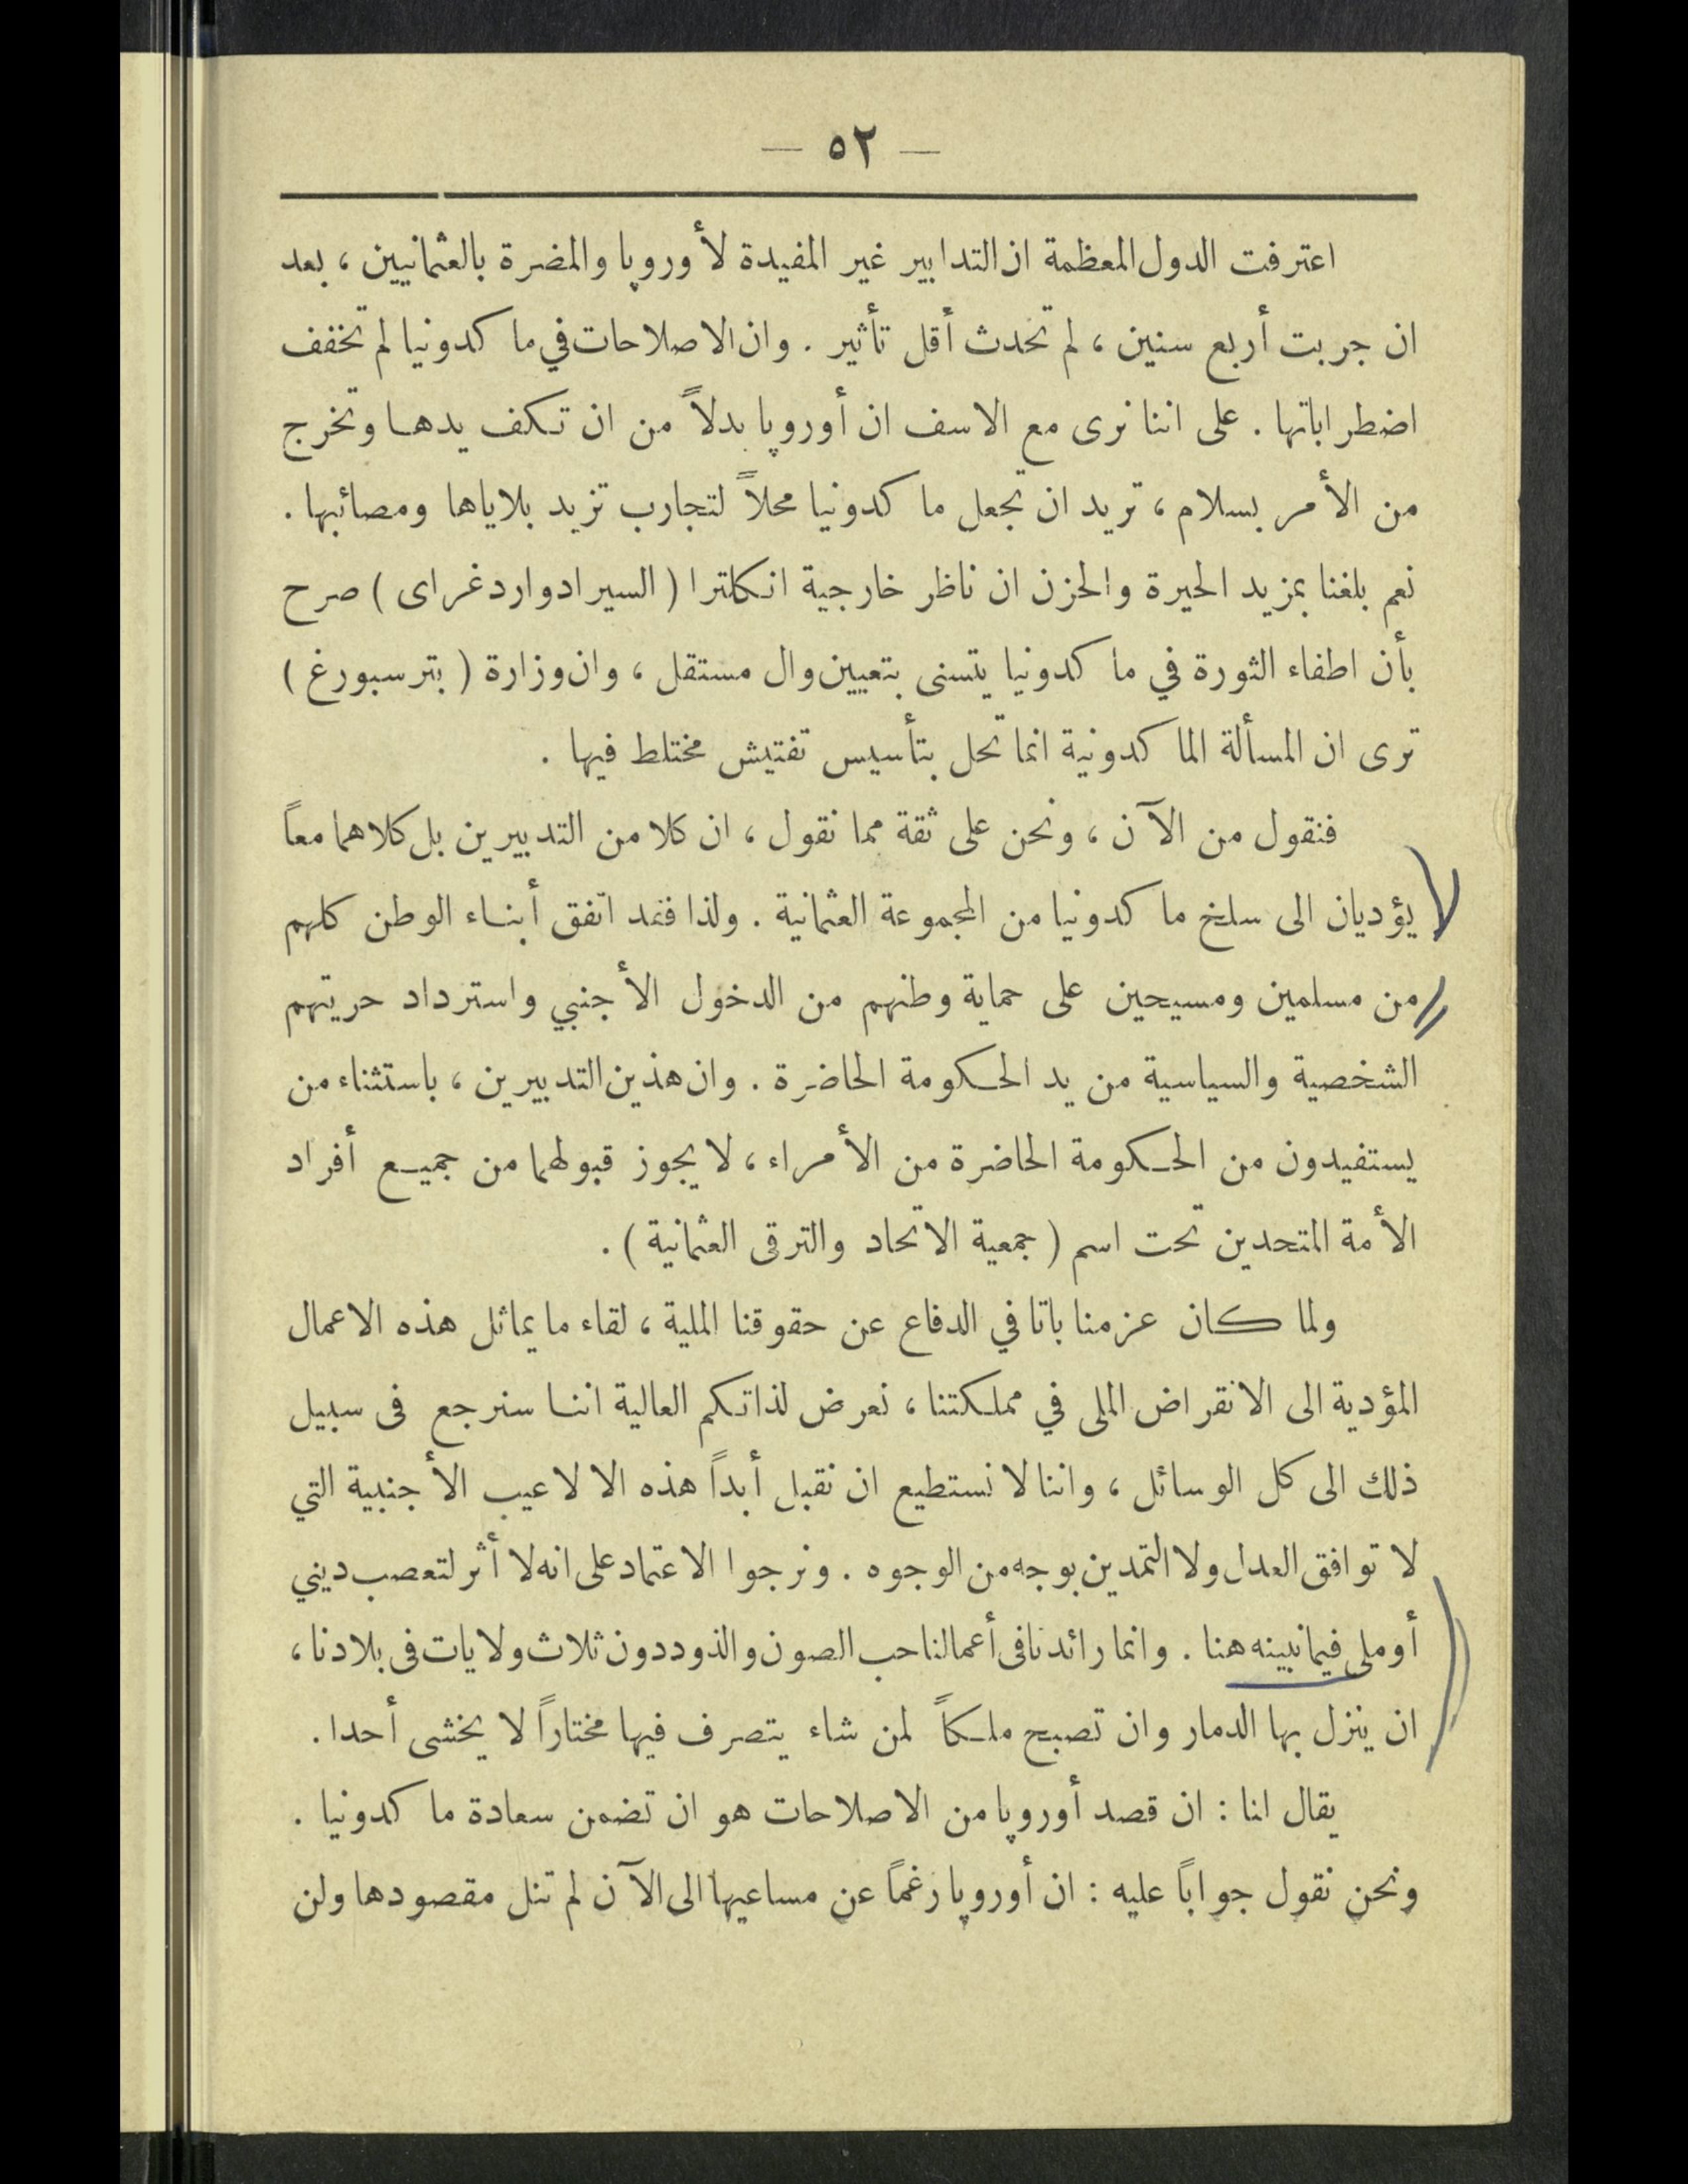 — ٥٢ —
اعترفت الدول المعظمة ان التدابير غير المفيدة لأوروپا والمضرة بالعثمانيين ، بعد
ان جربت أربع سنين ، لم تحدث أقل تأثير . وان الاصلاحات في ماكدونيا لم تخفف
اضطراباتها . على اننا نرى مع الاسف ان أوروپا بدلاً من ان تكف يدها وتخرج
من الأمر بسلام ، تريد ان تجعل ماكدونيا محلاً لتجارب تزيد بلاياها ومصائبها .
نعم بلغنا بمزيد الحيرة والحزن ان ناظر خارجية انكلترا ( السير ادوارد غراى ) صرح
بأن اطفاء الثورة في ماكدونيا يتسنى بتعيين وال مستقل ، وان وزارة ( بترسبورغ )
ترى ان المسألة الماكدونية انما تحل بتأسيس تفتيش مختلط فيها .
فنقول من الآن ، ونحن على ثقة مما نقول ، ان كلا من التدبيرين بل كلاهما معاً
يؤديان الى سلخ ماكدونيا من المجموعة العثمانية . ولذا فقد اتفق أبناء الوطن كلهم
من مسلمين ومسيحين على حماية وطنهم من الدخول الأجنبي واسترداد حريتهم
الشخصية والسياسية من يد الحكومة الحاضرة . وان هذين التدبيرين ، باستثناء من
يستفيدون من الحكومة الحاضرة من الأمراء ، لا يجوز قبولهما من جميع أفراد
الأمة المتحدين تحت اسم ( جمعية الاتحاد والترقى العثمانية ) .
ولما كان عزمنا باتا في الدفاع عن حقوقنا الملية ، لقاء ما يماثل هذه الاعمال
المؤدية الى الانقراض الملى في مملكتنا ، نعرض لذاتكم العالية اننا سنرجع فى سبيل
ذلك الى كل الوسائل ، واننا لا نستطيع ان نقبل أبداً هذه الالاعيب الأجنبية التي
لا توافق العدل ولا التمدين بوجه من الوجوه . ونرجوا الاعتماد على انه لا أثر لتعصب ديني
أو ملى فيما نبينه هنا . وانما رائدنا فى أعمالنا حب الصون والذود دون ثلاث ولايات فى بلادنا ،
ان ينزل بها الدمار وان تصبح ملكاً لمن شاء يتصرف فيها مختاراً لا يخشى أحدا .
يقال لنا : ان قصد أوروپا من الاصلاحات هو ان تضمن سعادة ماكدونيا .
ونحن نقول جواباً عليه : ان أوروپا رغماً عن مساعيها الى الآن لم تنل مقصودها ولن